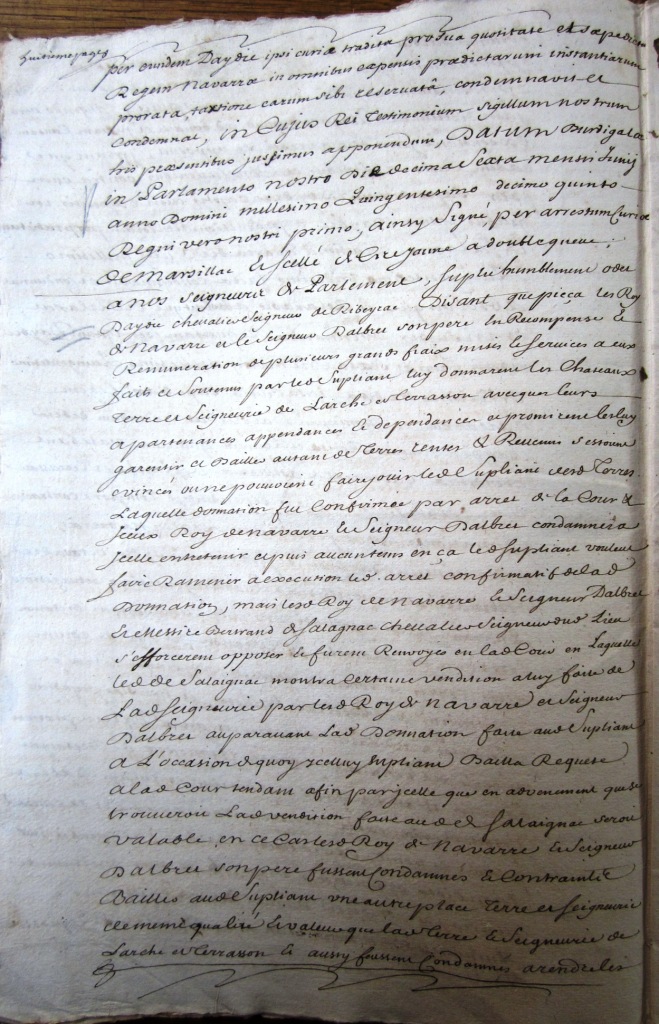 huitieme page
per eundem Daydie ipsi curiæ tradita pro sua quotitate et sæpedictum
Regem Navarræ in omnibus expensis prædictarum instantiarum
prorata, taxatione earum sibi reservatâ, condemnavit et
Condemnat, in Cujus Rei Testimonium sigillum nostrum
præsentibus jussimus apponendum, Datum Burdigalæ
in Parlamento nostro Die decima Sexta mensis Junij
anno Domini millesimo Quingentesimo decimo quinto
Regni vero nostri primo, ainsy Signé, per arrestum Curiæ
de Marsillac Et scellé de Cire Jaune a double queue;
a nos seigneurs de Parlement, suplie humblement odet
Daydie chevalier Seigneur de Ribeyrac Disant que pieça les Roy
de Navarre et le Seigneur Dalbret son pere En Recompense Et
Remuneration de plusieurs grands fraix mises et services a eux
faits et Soutenus par led Supliant luy donnarent les Chateaux
Terre et Seigneurie de Larche et Terrasson avecques leurs
apartenances appendances Et dependances et promirent les luy
garentir et Bailler autant de Terres Rentes & Revenus s'estoient
evincés ou ne pouvoient faire jouir led Supliant desd Terres
Laquelle donnation fut Confirmée par arret de la Cour &
Iceux Roy de navarre Et Seigneur Dalbret condamnés a
Icelle entretenir et puis aucun tems en ça led supliant voulut
faire Ramener a execution led arret confirmatif de lad
Donnation, mais lesd Roy de navarre Et Seigneur Dalbret
Et Messire Bertrand de Salagnac chevalier Seigneur dud Lieu
s'efforcerent opposer Et furent Renvoyés en lad Cour en Laquelle
led de Salaignac montra Certaine vendition a luy faite de
Lad Seigneurie par lesd Roy de navarre et Seigneur
Dalbret auparavant Lad Donnation faite aud Supliant
A L'occasion de quoy Icelluy Supliant Bailla Requete
a lad Cour tendant afin par Icelle que en advenement que se
trouveroit Lad vendition faite aud de Salaignac seroit
valable, en ce Cas lesd Roy de Navarre Et Seigneur
Dalbret son pere fussent Condamnes Et Contraints
Bailler aud Supliant une autre place Terre et seigneurie
de meme qualité Et valeur que lad Terre Et Seigneurie de
Larche et Terrasson Et aussy fussent Condamnes a rendre les